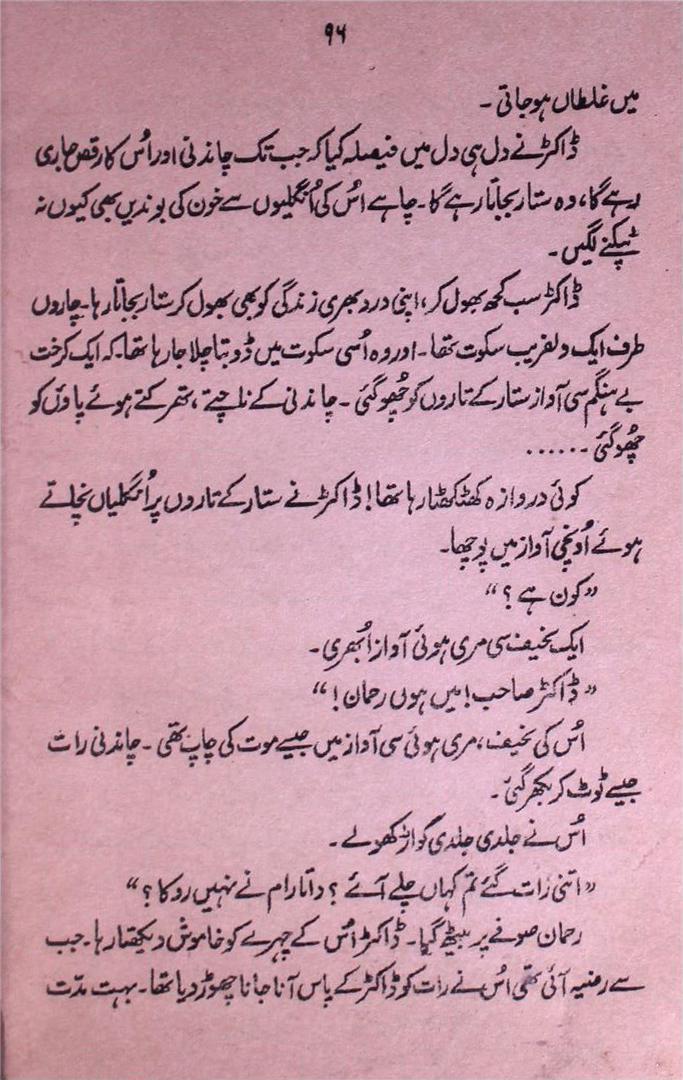 ۹۶
میں غلطاں ہوجاتی ۔
ڈاکٹر نے دل ہی دل میں فیصلہ کیا کہ جب تک چاندنی اور اُس کا رقص جاری
رہے گا، وہ ستار بجاتا رہے گا ۔ چاہے اُس کی اُنگلیوں سے خون کی بوندیں بھی کیوں نہ
ٹپکنے لگیں ۔
ڈاکٹر سب کچھ بھول کر، اپنی درد بھری زندگی کو بھی بھول کر ستار بجاتا رہا ۔ چاروں
طرف ایک دلفریب سکوت تھا ۔ اور وہ اُسی سکوت میں ڈوبتا چلا جا رہا تھا ۔ کہ ایک کرخت
بے ہنگم سی آواز ستار کے تاروں کو چھو گئی ۔ چاندنی کے ناچتے ، تھرکتے ہوئے پاؤں کو
چھُو گئی ۔ ......
کوئی دروازہ کھٹکھٹا رہا تھا! ڈاکٹر نے ستار کے تاروں پر اُنگلیاں نچاتے
ہوئے اُونچی آواز میں پوچھا۔
”کون ہے ؟“
ایک نحیف سی مری ہوئی آواز اُبھری ۔
”ڈاکٹر صاحب! میں ہوں رحمان !“
اُس کی نحیف ، مری ہوئی سی آواز میں جیسے موت کی چاپ تھی ۔ چاندنی رات
جیسے ٹوٹ کر بکھر گئی ۔
اُس نے جلدی جلدی کواڑ کھولے ۔
”اتنی رات گئے تم کہاں چلے آئے ؟ داتا رام نے نہیں روکا ؟“
رحمان صوفے پر بیٹھ گیا ۔ ڈاکٹر اُس کے چہرے کو خاموش دیکھتا رہا ۔ جب
سے رضیہ آئی تھی اُس نے رات کو ڈاکٹر کے پاس آنا جانا چھوڑ دیا تھا ۔ بہت مدّت